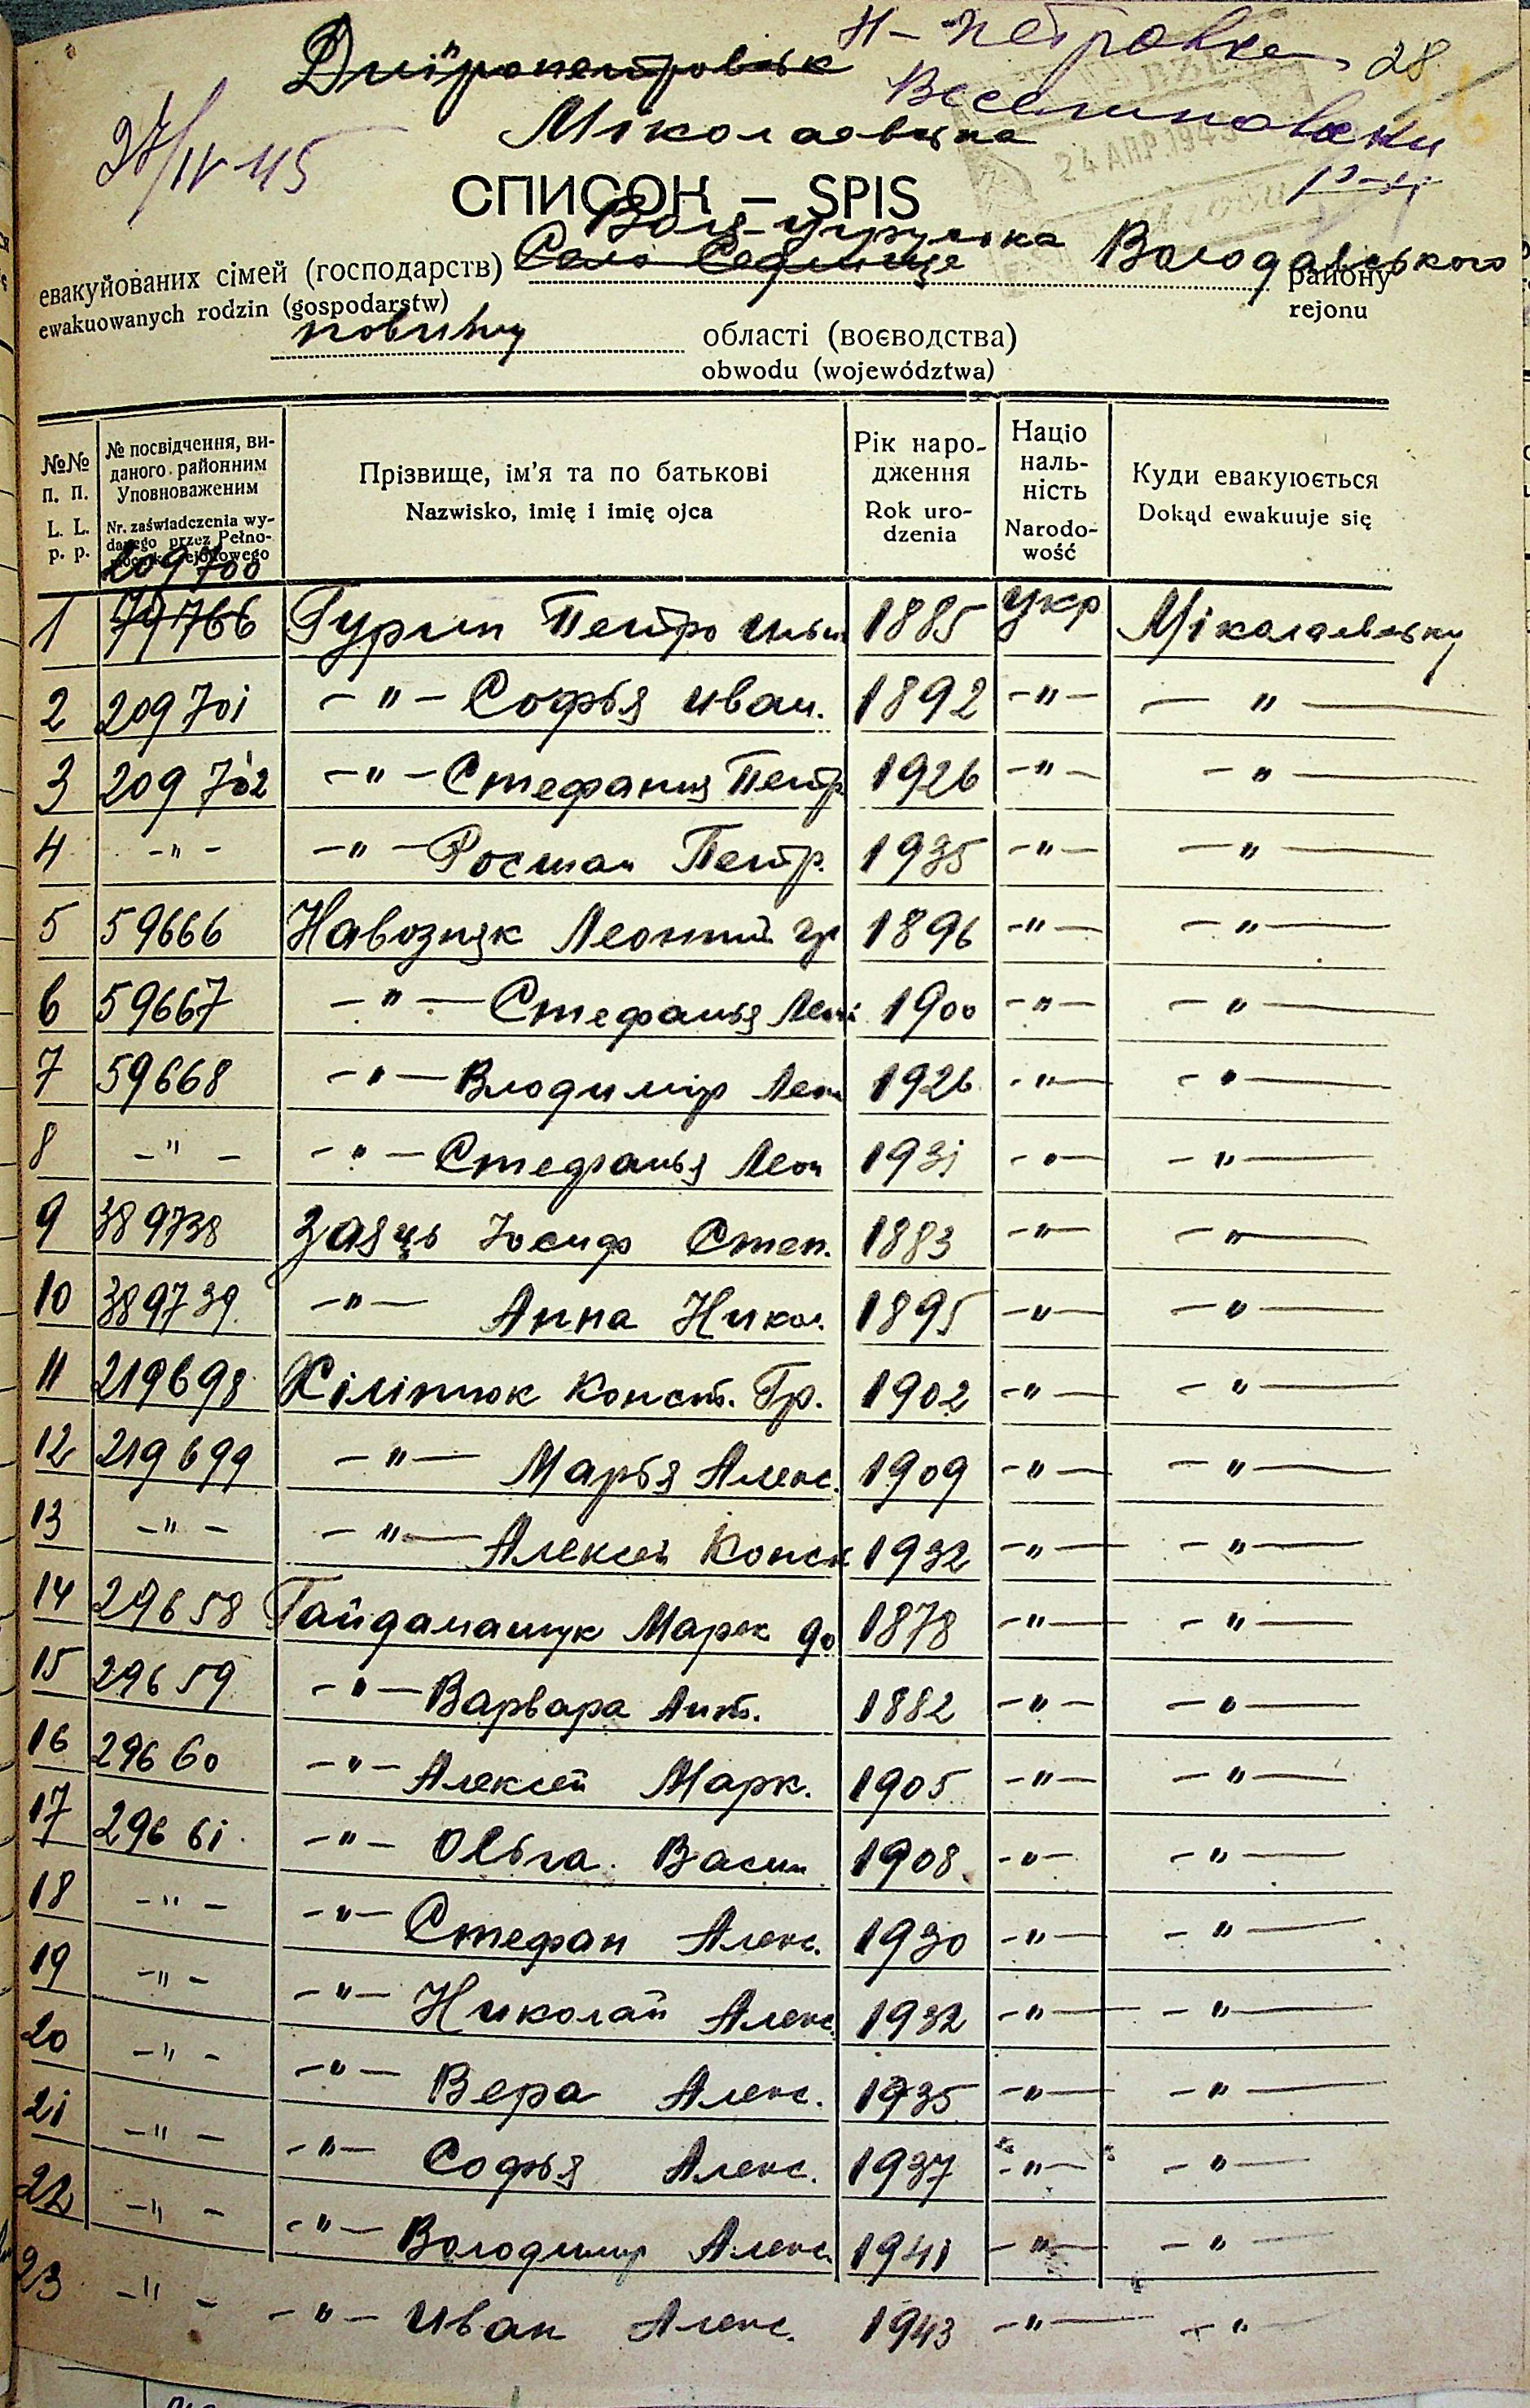 Н-Петровка 28
Дніпропетровськ
Веселиновский
Міколаевщина
р-н
27/IV 45
24 АПР.1945
СПИСОК – SPIS
Воля-Угруська
евакуйованих сімей (господарств) Село Седлище Володавського району
ewakuowanych rodzin (gospodarstw) rejonu
повіту області (воєводства)
obwodu (województwa)
№№ п. п. L. L. p. p. № посвідчення, виданого районним Уповноваженим Nr. zaświadczenia wydanego przez Pełnomocnika rejonowego Прізвище, ім'я та по батькові Nazwisko, imię i imię ojca Рік народження Rok urodzenia Націо нальність Narodowość Куди евакуюється Dokąd ewakuuje się
209700
1 79766 Гурин Петро Ильи 1885 Укр Міколаевьску
2 209701 -"- Софья Иван. 1892 -"- -"-
3 209702 -"- Стефания Петр 1926 -"- -"-
4 -"- -"- Росман Петр. 1935 -"- -"-
5 59666 Навозняк Леонтий Гр 1896 -"- -"-
6 59667 -"- Стефанья 1900 -"- -"-
7 59668 -"- Влодимір Леон 1926 -"- -"-
8 -"- -"- Стефанья Леон 1931 -"- -"-
9 389738 Заяць Іосиф Степ. 1883 -"- -"-
10 389739 -"- Анна Никол. 1895 -"- -"-
11 219698 Хіліпюк Конст. Гр. 1902 -"- -"-
12 219699 -"- Марья Алекс. 1909 -"- -"-
13 -"- -"- Алексей Конск 1932 -"- -"-
14 29658 Гайдамащук Марек 1878 -"- -"-
15 29659 -"- Варвара Ант. 1882 -"- -"-
16 29660 -"- Алексей Марк. 1905 -"- -"-
17 29661 -"- Ольга Васил 1908 -"- -"-
18 -"- -"- Стефан Алекс. 1930 -"- -"-
19 -"- -"- Николай Алекс. 1932 -"- -"-
20 -"- -"- Вера Алекс. 1935 -"- -"-
21 -"- -"- Софья Алекс. 1937 -"- -"-
22 -"- -"- Володимир Алекс 1941 -"- -"-
23 -"- -"- Иван Алекс. 1943 -"- -"-